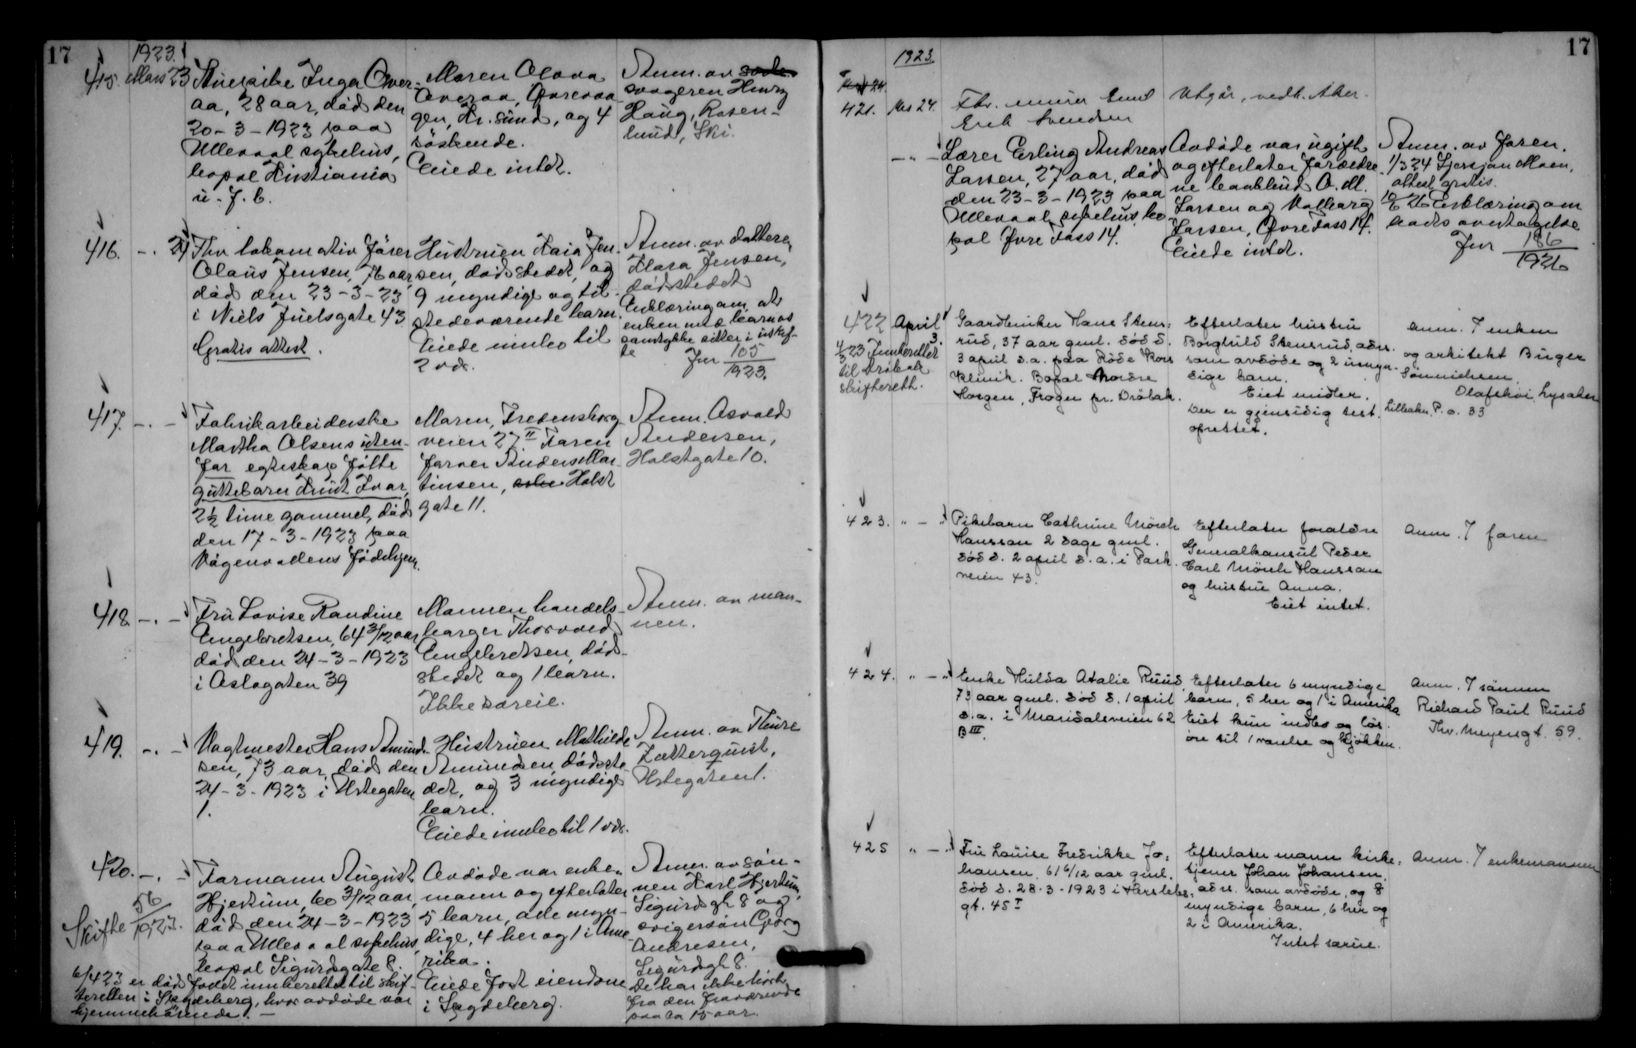 17
1923.
415. Mars 23 Tjuepike Inga Over-
aa, 28 aar, død den
20-3-1923 paa
Ullevaal sykehus,
bopæl Kristiania
u. f. b.
Moren Olava
Overaa, Øvrevaa-
gen, Kr. sund, og 4
søskende.
Eiede intet.
Anm. av
svogeren Henry
Haug, Rosen-
lund, Ski.
416. -. 24 Fhv lokomotiv fører
Olaus Jensen, 76 aar,
død den 23-3-23
i Niels Juelsgate 43
Gratis attest.
Hustruen Kaia Jen-
sen, dødsstedet, og
9 myndige og til-
stedeværende barn.
Eiede innbo til
2 vær.
Anm. av datteren
Klara Jensen,
dødsstedet
Erklæring om at
enken med barnas
samtykke sitter i uskif-
te
Jnr 105/1923.
417. -. - Fabrikarbeiderske
Martha Olsens uten-
for egteskap fødte
guttebarn Knut Ivar,
2½ time gammel, død
den 17-3-1923 paa
Vågenvadens fødehjem.
Moren, Fredensborg-
veien 27 II Faren
former Anders Mar-
tinsen, Holst
gate 11.
Anm. Osvald
Andersen,
Holstgate 10.
418. -. - Fru Lovise Randine
Engebretsen, 64 3/12 aar
død den 24-3-1923
i Oslogaten 39
Mannen handels-
borger Thorvald
Engebretsen, død-
stedet og 1 barn.
Ikke særeie.
Anm. av man-
nen.
419. -. - Vagtmester Hans Amund-
sen, 73 aar, død den
24-3-1923 i Urtegaten
1.
Hustruen Mathilde
Amundsen, dødsste-
det, og 3 myndige
barn.
Eiede innbo til 1 vær.
Anm. av Thure
Zetterquist,
Urtegaten 1.
420. -. - Formann August
Hjertum, 60 3/12 aar,
død den 24-3-1923
paa Ullevaal sykehus,
bopæl Sigurdsgate 8.
Avdøde var enke-
mann og efterlater
5 barn, alle myn-
dige, 4 her og 1 i Ame-
rika.
Eiede fast eiendom
i Spydeberg.
Anm. av søn-
nen Karl Hjertum,
Sigurdsgt 8 og
svigersøn Georg
Andresen,
Sigurdsgt 8.
De har ikke hørt
fra den fraværende
paa ca 15 aar.
Skifte 56/1923.
6/4 23 er dødsfaldet innberettet til skif-
teretten i Spydeberg, hvor avdøde var
hjemmehørende. -
17
1923.
421. Mrs 24. Fhv. murer Emil
Erik Svendsen
Utgår, vedk. Aker.
- - Lærer Erling Andreas
Larsen, 27 aar, død
den 23-3-1923 paa
Ullevaal sykehus bo-
pæl Øvre Foss 14.
Avdøde var ugift
og efterlater forældre-
ne kontorbud O. M.
Larsen og Valborg
Larsen, Øvre Foss 14.
Eiede intet.
Anm. av faren.
1/3 24 Sjersjan Moen,
attest gratis.
10/6 26 Erklæring om
boets overtagelse
Jnr 186/1926
422 April 3.
4/5 23 Innberettet
til Drøbak
skifterett.
Gaardbruker Hans Stens-
rud, 37 aar gml. død d.
3 april d.a. paa Røde Kors
klinik. Bopæl Nordre
Horgen, Frogn pr. Drøbak.
Efterlater hustru
Borghild Stensrud, adrs.
som avdøde og 2 umyn-
dige barn.
Eiet midler.
Der er gjensidig test.
oprettet.
Anm. 7 enken
og arkitekt Birger
Sønnichsen
Olafskoi, Lysaker
Lilleaker P. o. 33
423. " - " Pikebarn Cathrine Mörch
Hansson 2 dage gml.
død d. 2 april d.a. i Park-
veien 43.
Efterlater foraldre
Generalkonsul Peder
Carl Mörch Hansson
og hustru Anna.
Eiet intet.
Anm. 7 faren
424. " - " Enke Hulda Atalie Ruud,
73 aar gml. død d. 1 april
d.a. i Maridalsveien 62
B III.
Efterlater 6 myndige
barn, 5 her og 1 i Amerika
Eiet kun indbo og løs-
øre til 1 værelse og kjøkken.
Anm. 7 sønnen
Richard Paul Ruud
Thv. Meyersgt. 59.
425 " - " Fru Louise Fredrikke Jo-
hansen, 61 6/12 aar gml.
død d. 28-3-1923 i Herslebs-
gt. 45 I
Efterlater mann kirke-
tjener Johan Johansen,
adrs. som avdøde, og 8
myndige barn, 6 her og
2 i Amerika.
Intet særeie.
Anm. 7 enkemannen